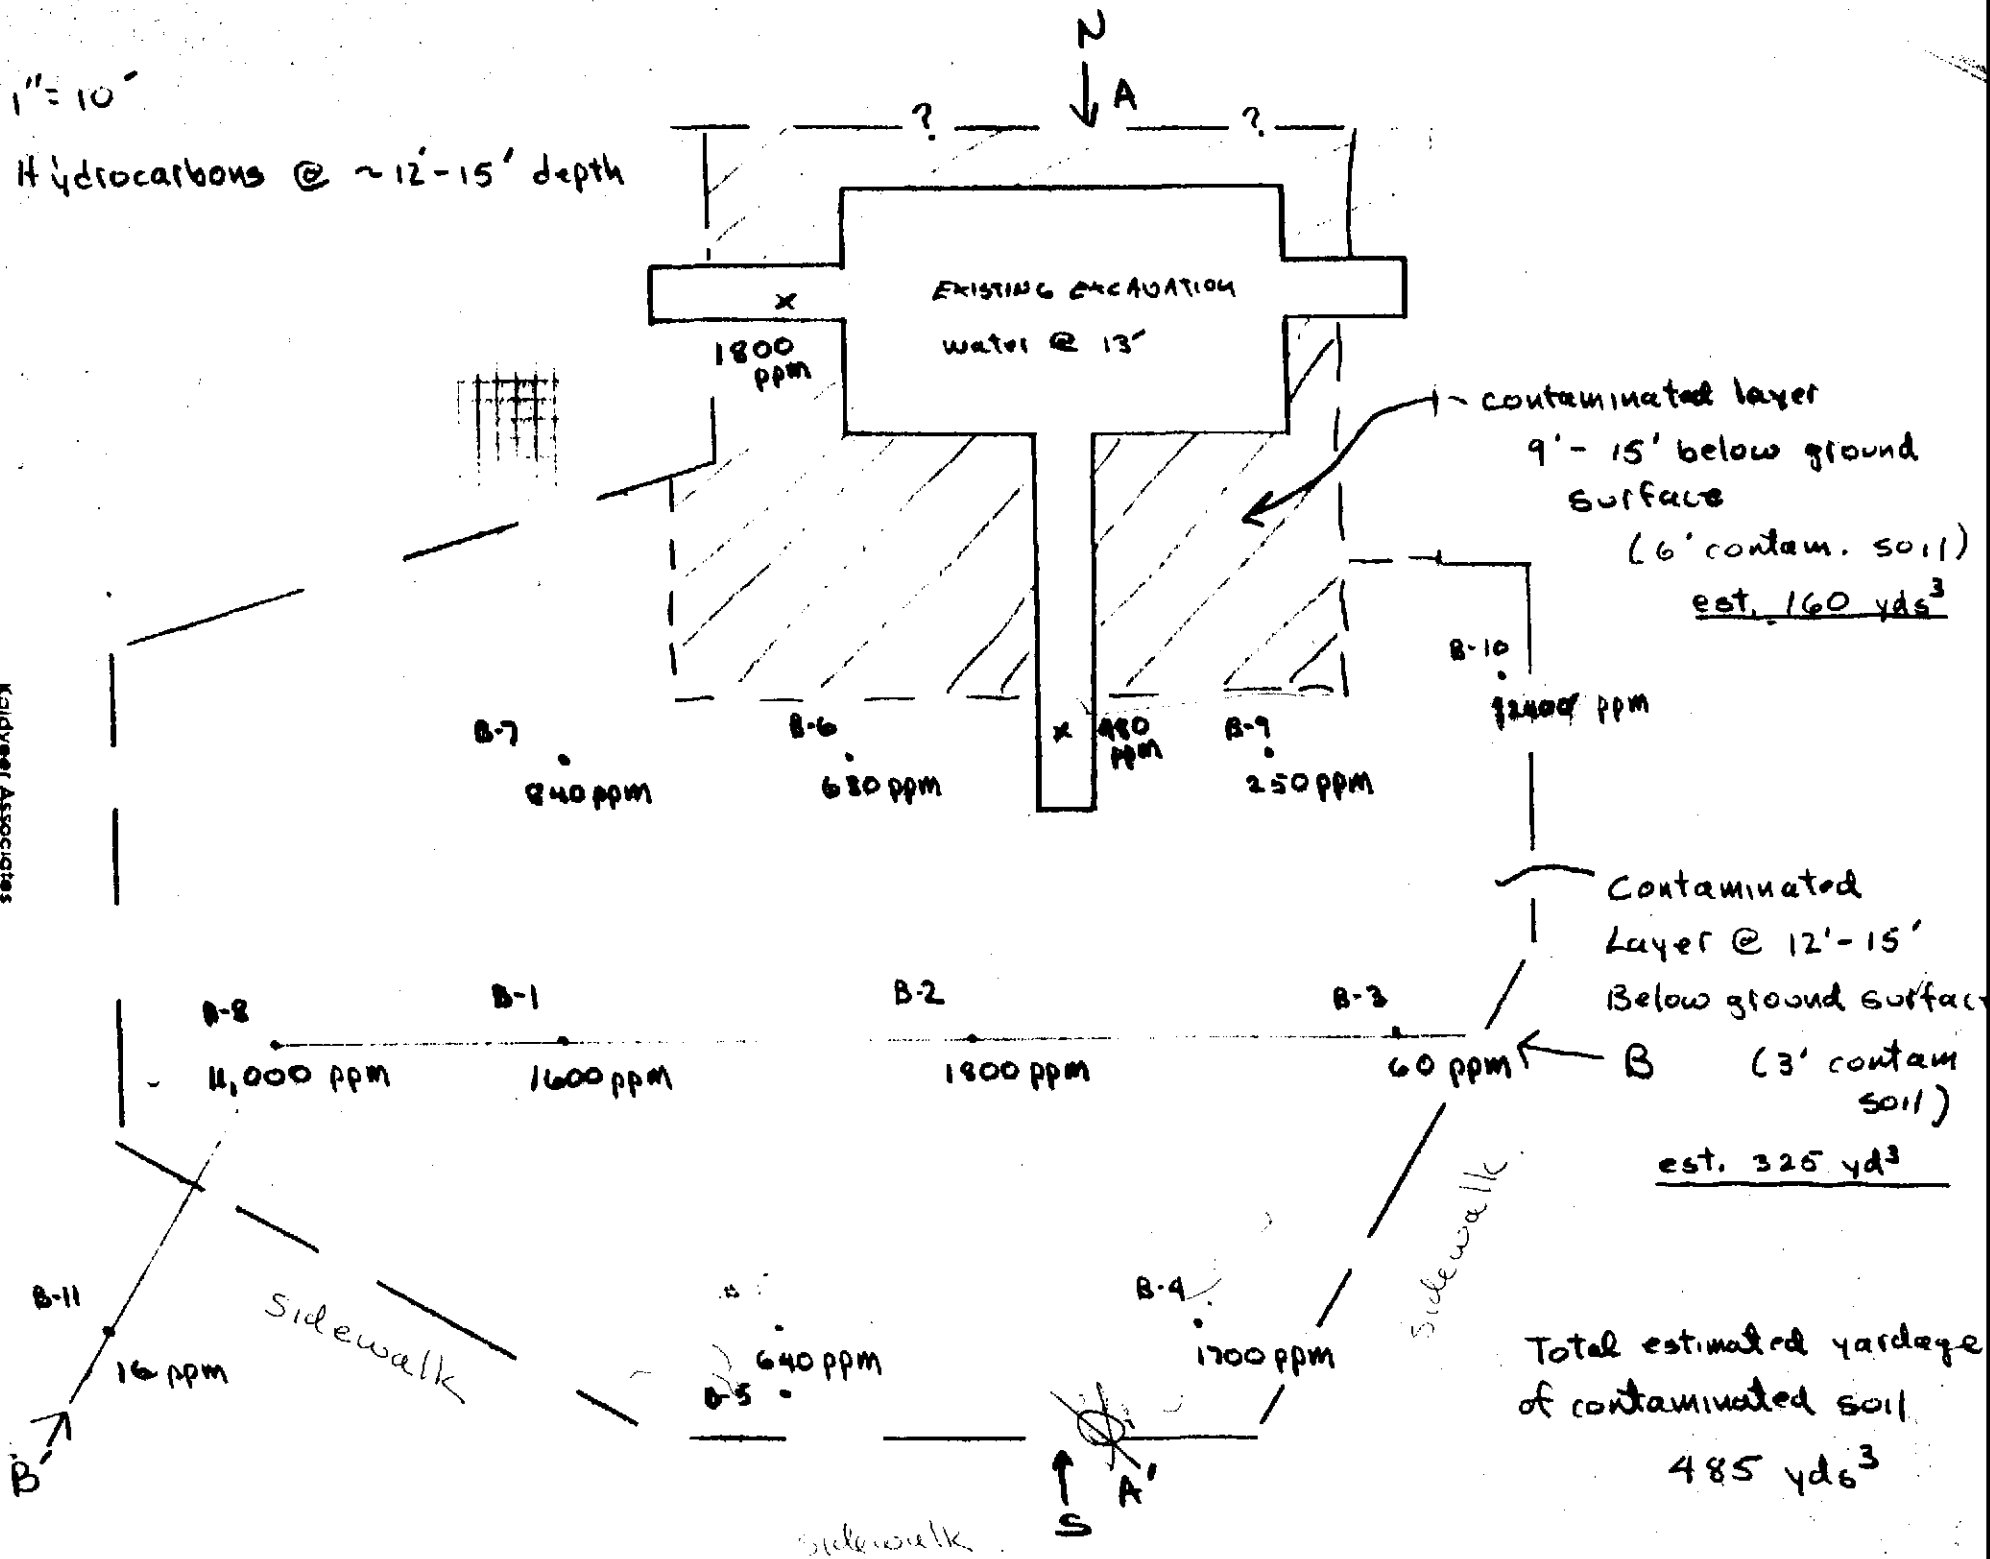 N
A
1" = 10'
Hydrocarbons @ ~ 12'-15' depth
? ?
EXISTING EXCAVATION
water @ 13'
x
1800
ppm
contaminated layer
9' - 15' below ground
surface
(6' contam. soil)
est. 160 yds³
B-10
ppm
B-7
840 ppm
B-6
680 ppm
x 480
ppm
B-9
250 ppm
Kaldveer Associates
Contaminated
Layer @ 12'-15'
Below ground surface
(3' contam
soil)
est. 325 yd³
B-8
11,000 ppm
B-1
1600 ppm
B-2
1800 ppm
B-3
60 ppm
B
B-11
16 ppm
B'
Sidewalk
Sidewalk
640 ppm
B-5
B-4
1700 ppm
A'
S
Sidewalk
Total estimated yardage
of contaminated soil
485 yds³